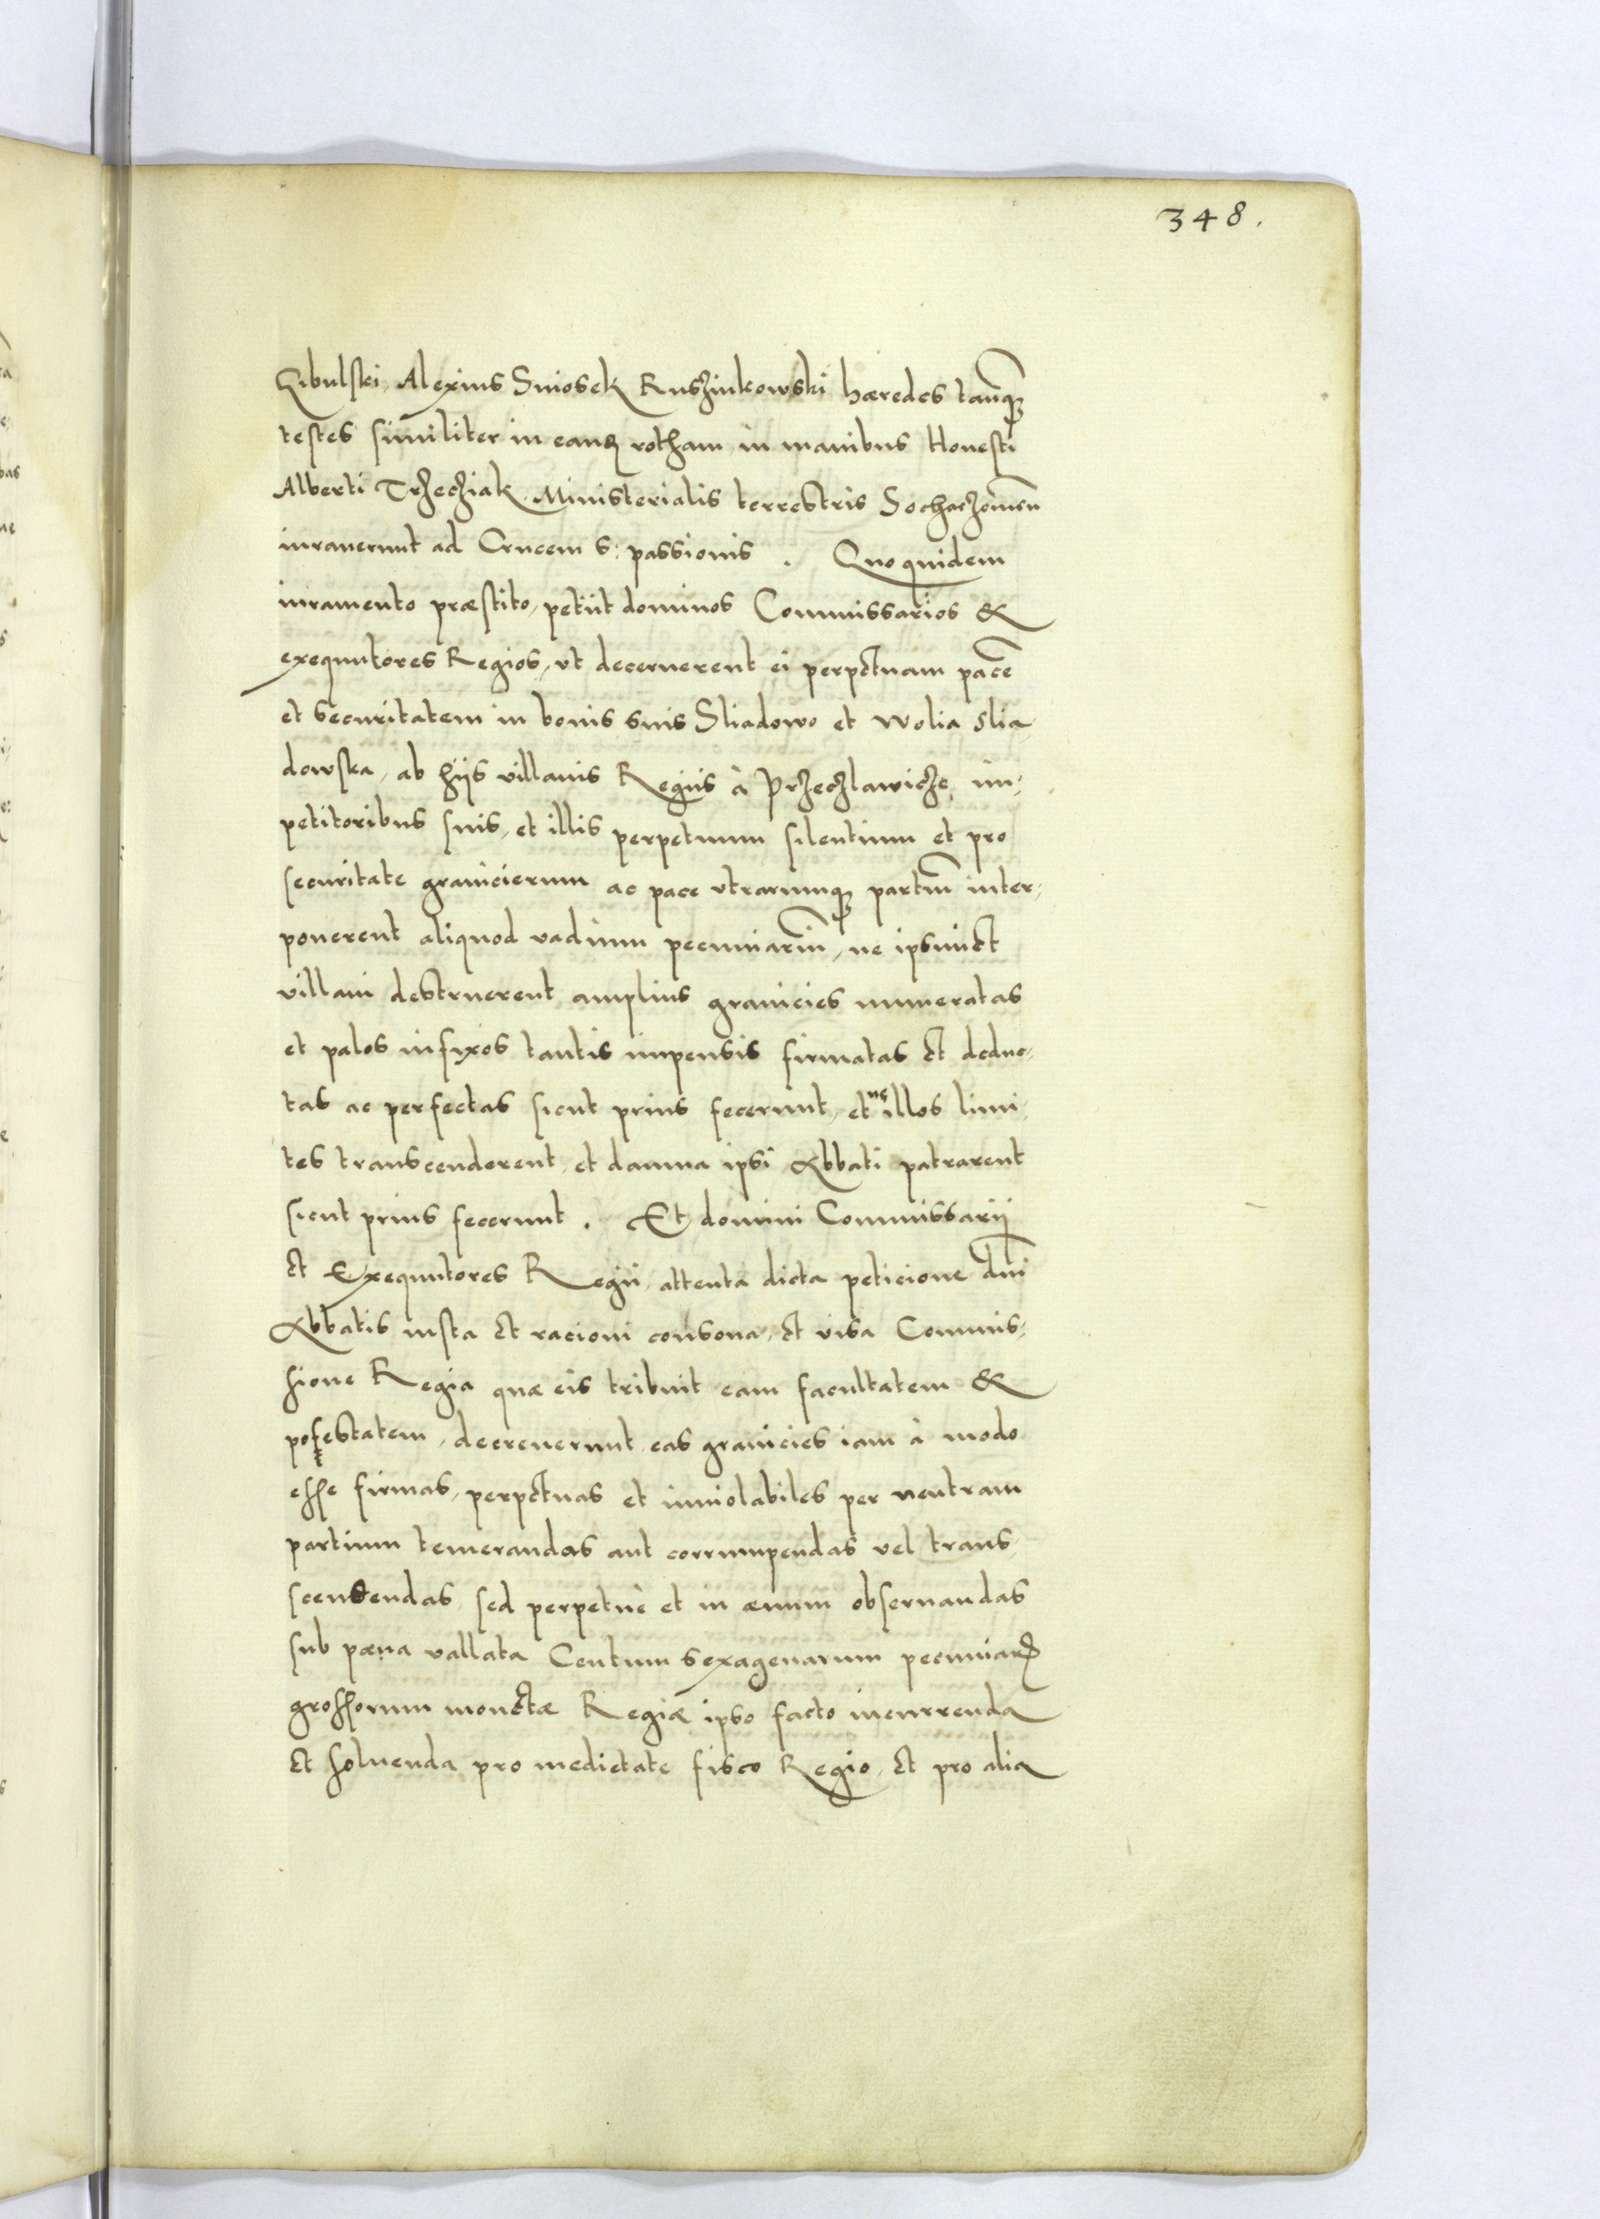 348.
Cibulski, Alexius Sniosek Ruszinkowski hæredes tanq̃
testes similiter in eandẽ rotham in manibus Honesti
Alberti Trzecziak Ministerialis terrestris Sochaczowień
iuraverunt ad Crucem s: passionis . Quo quidem
iuramento præstito, petiit dominos Commissarios &
exequutores Regios, vt decernerent ei perpetuam pacẽ
et securitatem in bonis suis Sliadowo et Wolia Slia-
dowska, ab hijs villanis Regiis à Przeczlawicze im-
petitoribus suis, et illis perpetuum silentium et pro
securitate granicierum ac pace vtrarumq; partiũ inter-
ponerent aliquod vadium pecuniariũ, ne ipsimet
villani destruerent amplius granicies numeratas
et palos infixos tantis impensis firmatas et deduc-
tas ac perfectas sicut prius fecerunt, et ne illos limi-
tes transcenderent, et damna ipsi Abbati patrarent
sicut prius fecerunt . Et domini Commissarij
et Exequutores Regii, attenta dicta peticione dñi
Abbatis iusta et racioni consona, et visa Commis-
sione Regia quæ eis tribuit eam facultatem &
potestatem, decreverunt eas granicies iam à modo
esse firmas, perpetuas et inuiolabiles per neutram
partium temerandas aut corrumpendas vel trans-
scendendas, sed perpetuè et in æuum obseruandas
sub pæna vallata Centum sexagenarum pecuniarũ
grossorum monetæ Regiæ ipso facto incurrenda
et soluenda pro medietate fisco Regio, et pro alia